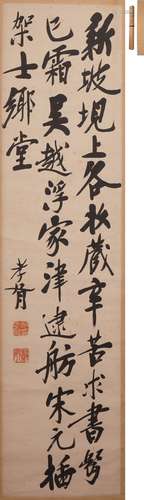 新坡上各收藏辛苦求書鬢
已霜吳越浮家津逮舫宋元插
架士鄉堂
孝胥